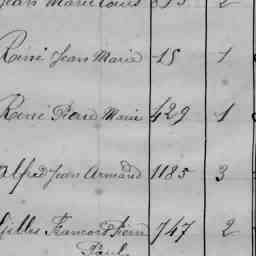 Jean Marie Louis 815 2
René Jean Marie 15 1
René Pierre Marie 429 1
Alfred Jean Armand 1185 3
Gilles François Pierre 747 2
Paul